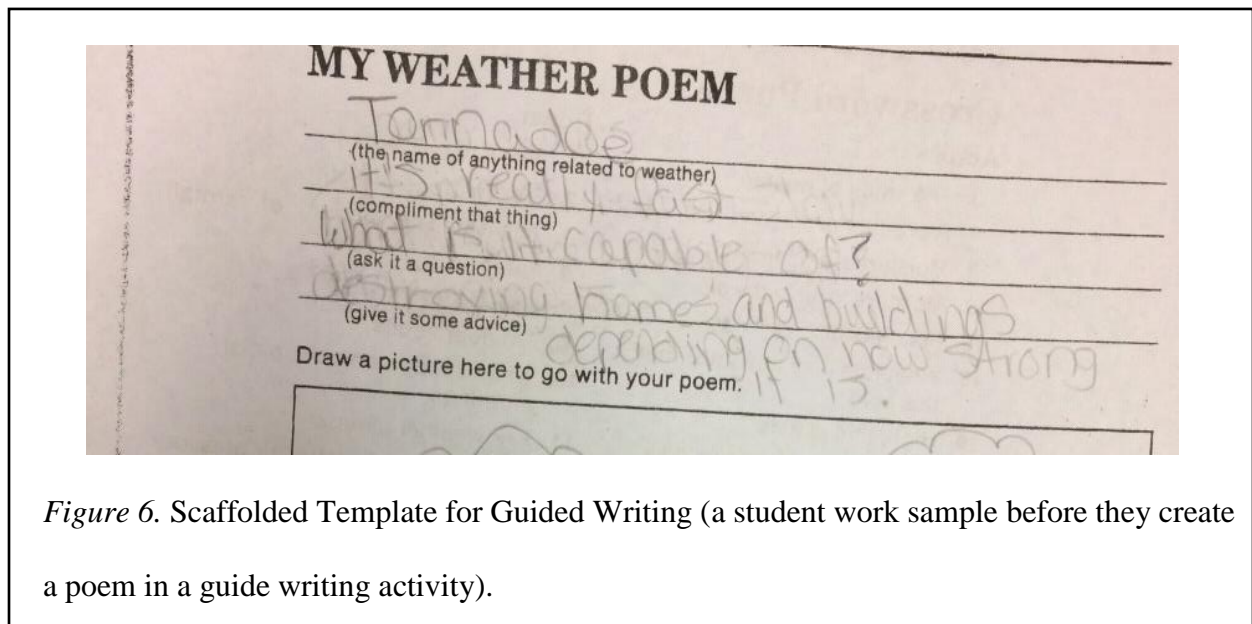 MY WEATHER POEM
Tornnadoe
(the name of anything related to weather)
it's really fast
(compliment that thing)
What is it capable of?
(ask it a question)
destroying homes and buildings
(give it some advice)
depending on how strong
Draw a picture here to go with your poem.
it is.
Figure 6. Scaffolded Template for Guided Writing (a student work sample before they create
a poem in a guide writing activity).